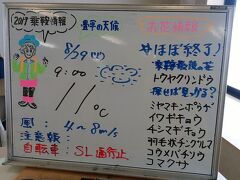 2017 乗鞍情報
畳平の天候
8/29(火)
9:00
11℃
風: 4~8m/s
注意報:
自転車: SL通行止
お花情報
*ほぼ終了♪
乗鞍最後の花
トウヤクリンドウ
探せば見つかる?
ミヤマキンポウゲ
イワギキョウ
チシマギキョウ
羽毛状チングルマ
コウメバチソウ
コマクサ